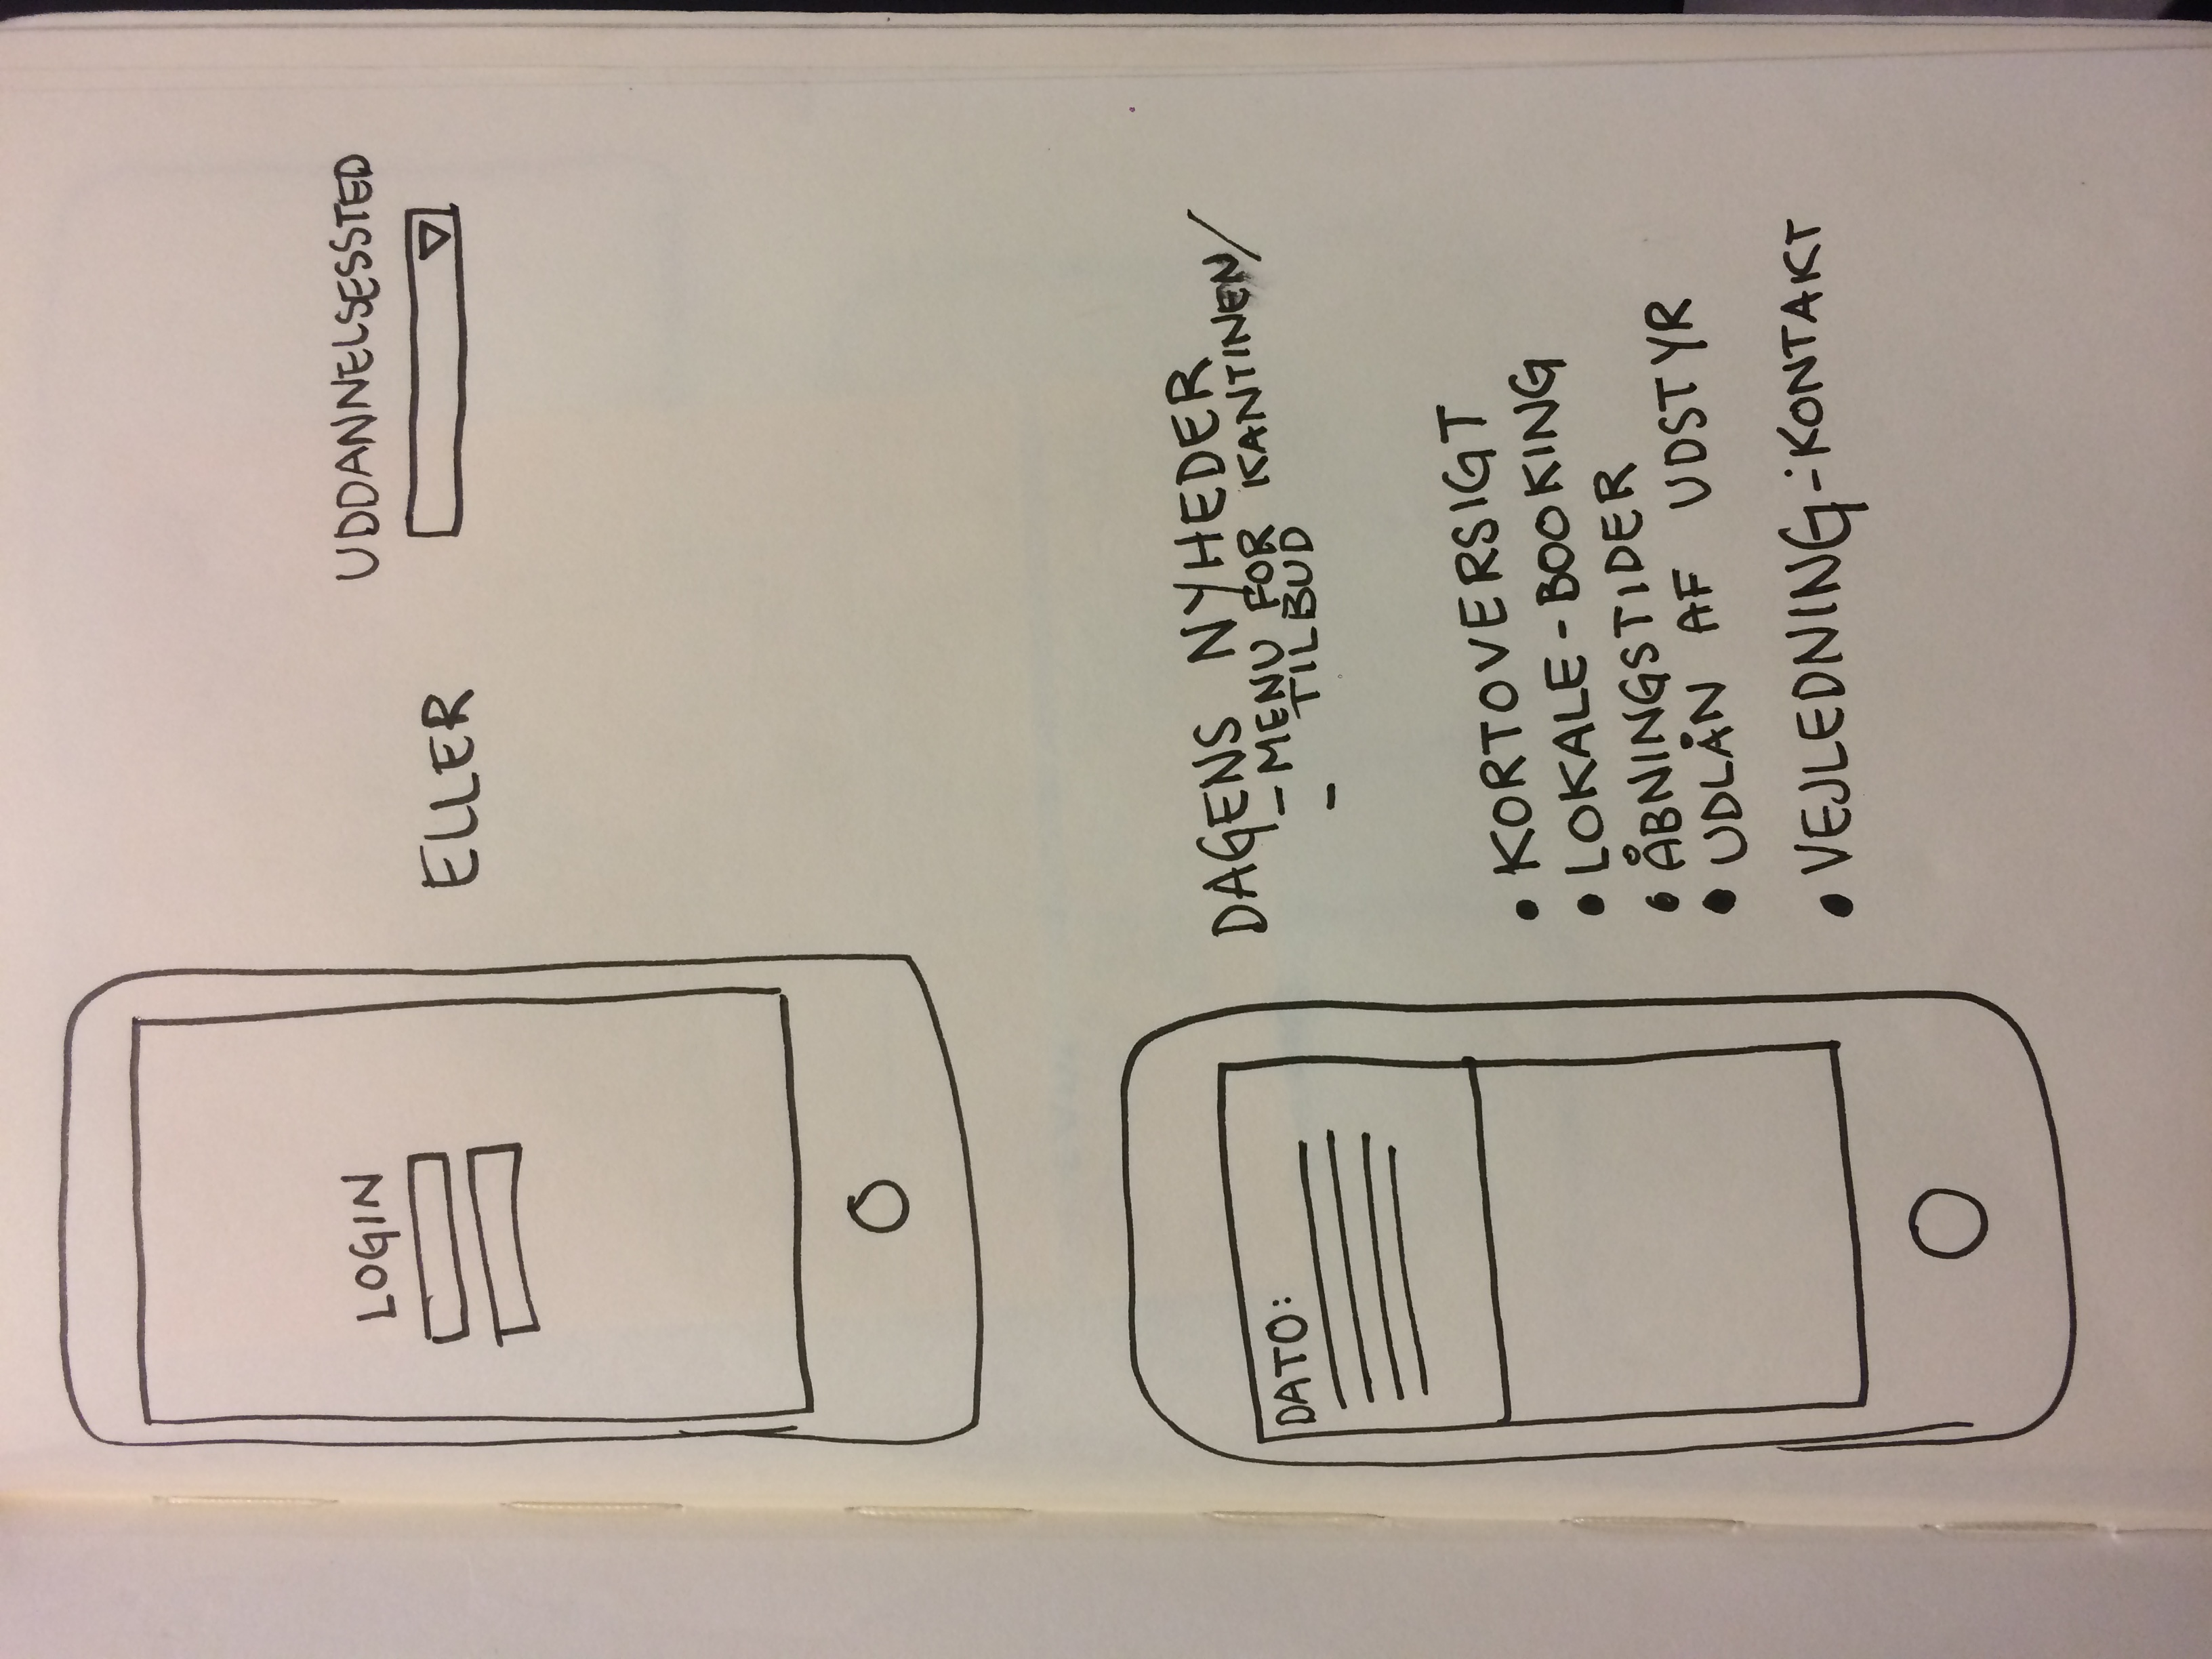 LOGIN
ELLER
UDDANNELSESSTED
DATO:
DAGENS NYHEDER
- MENU FOR KANTINEN/
TILBUD
-
• KORTOVERSIGT
• LOKALE-BOOKING
• ÅBNINGSTIDER
• UDLÅN AF UDSTYR
• VEJLEDNING-:KONTAKT